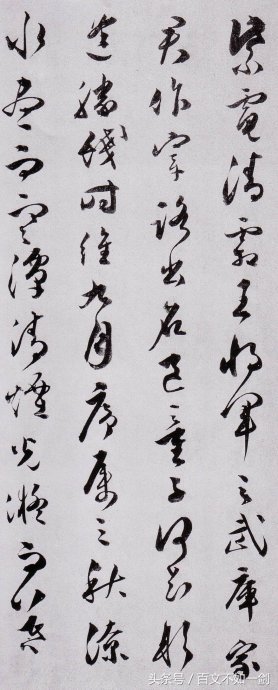 紫電清霜王將軍之武庫家
君作宰路出名區童子何知躬
逢勝餞時維九月序屬三秋潦
水盡而寒潭清煙光凝而暮
头条号 / 百文不如一剑